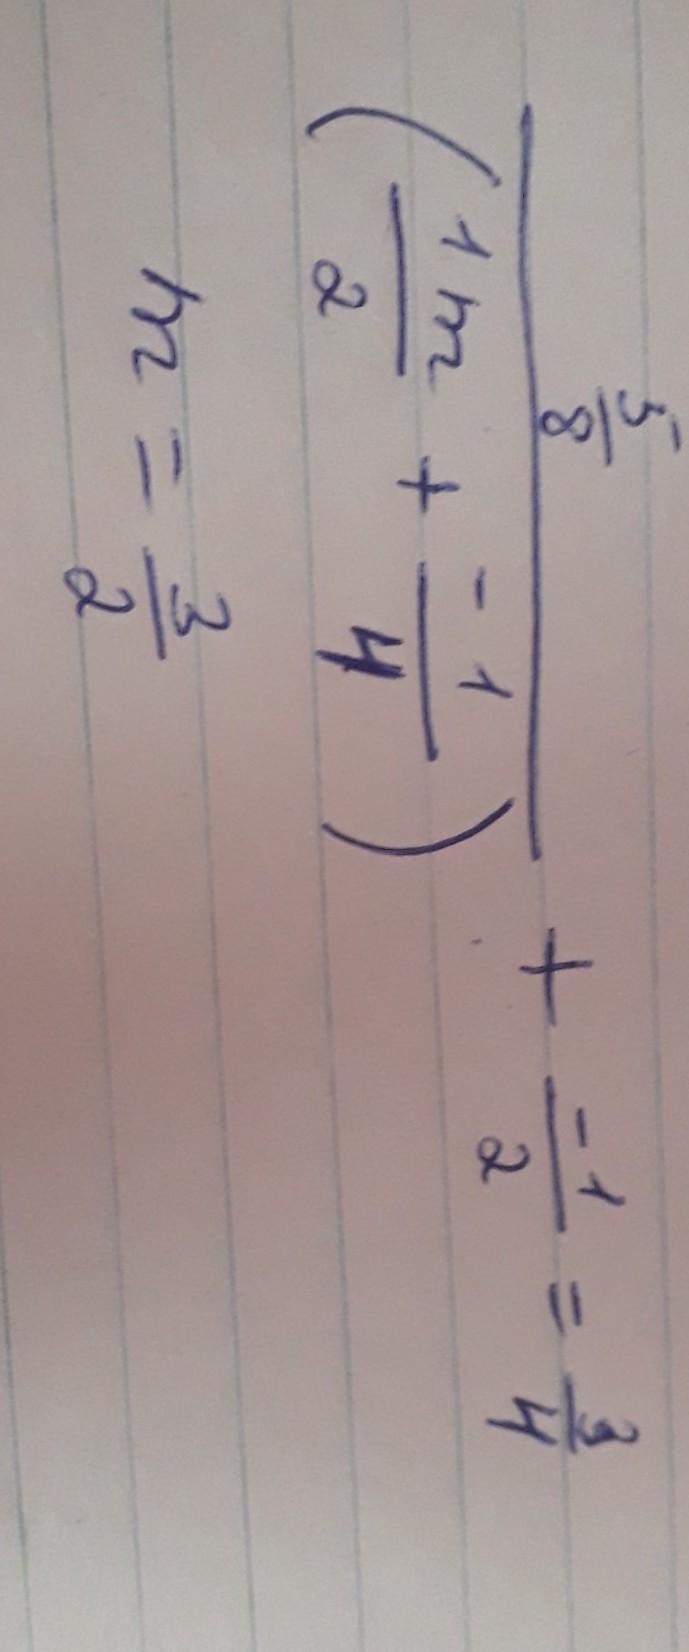 5/8
(1n/2 + -1/4) + -1/2 = 3/4
n = 3/2